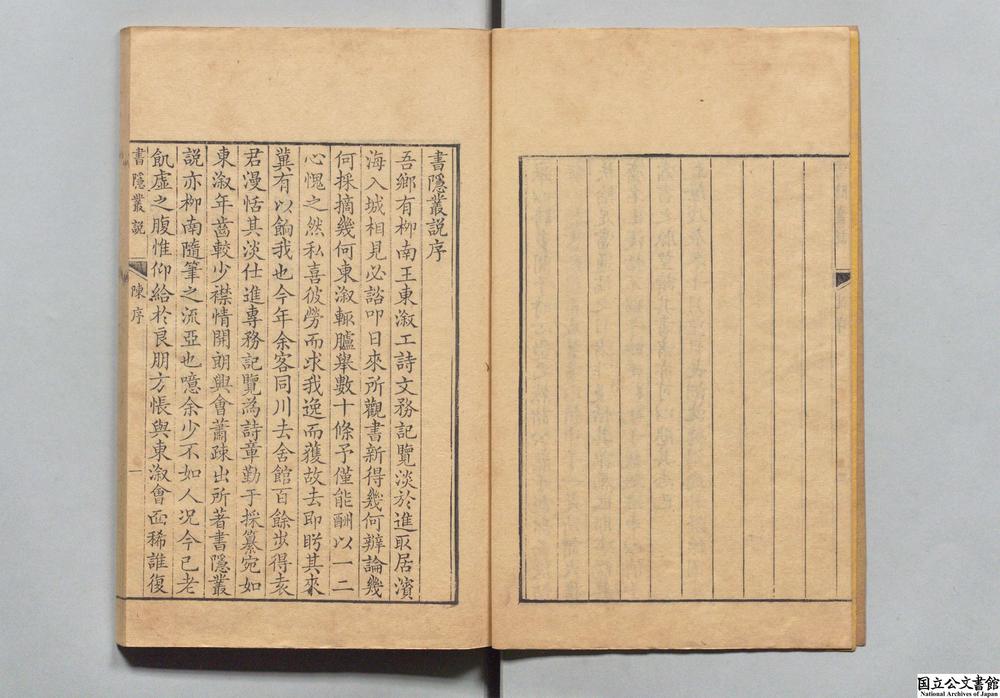 書隱叢説序
吾鄉有柳南王東溆工詩文務記覽淡於進取居濱
海入城相見必諮叩日來所觀書新得幾何辨論幾
何採摘幾何東溆輒臚舉數十條予僅能酬以一二
心愧之然私喜彼勞而求我逸而獲故去即盻其來
冀有以餉我也今年余客同川去舍館百餘步得袁
君漫恬其淡仕進專務記覽為詩章勤于採纂宛如
東溆年齒較少襟情開朗興會蕭疎出所著書隱叢
説亦柳南隨筆之流亞也噫余少不如人况今已老
飢虛之腹惟仰給於良朋方悵與東溆會面稀誰復
書隱叢説
陳序
一
国立公文書館
National Archives of Japan